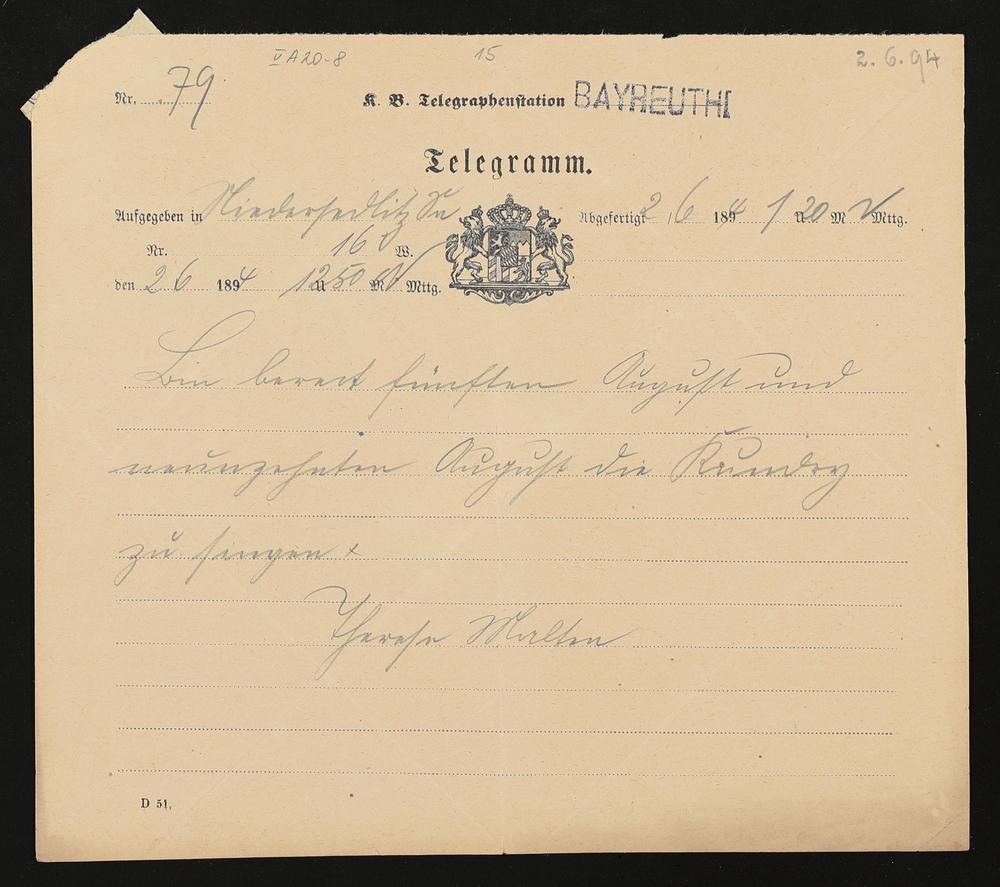 V A 20-8 15 2. 6. 94
Nr. 79 K. B. Telegraphenstation BAYREUTH
Telegramm.
Aufgegeben in Niedersedlitz Sn Abgefertigt 2/6 1894 1 U 20 M N Mttg.
Nr. 16 W.
den 2 6 1894 12 U 50 M N Mttg.
Bin bereit fünften August und
neunzehnten August die Kundry
zu singen x
Therese Malten
D 51.